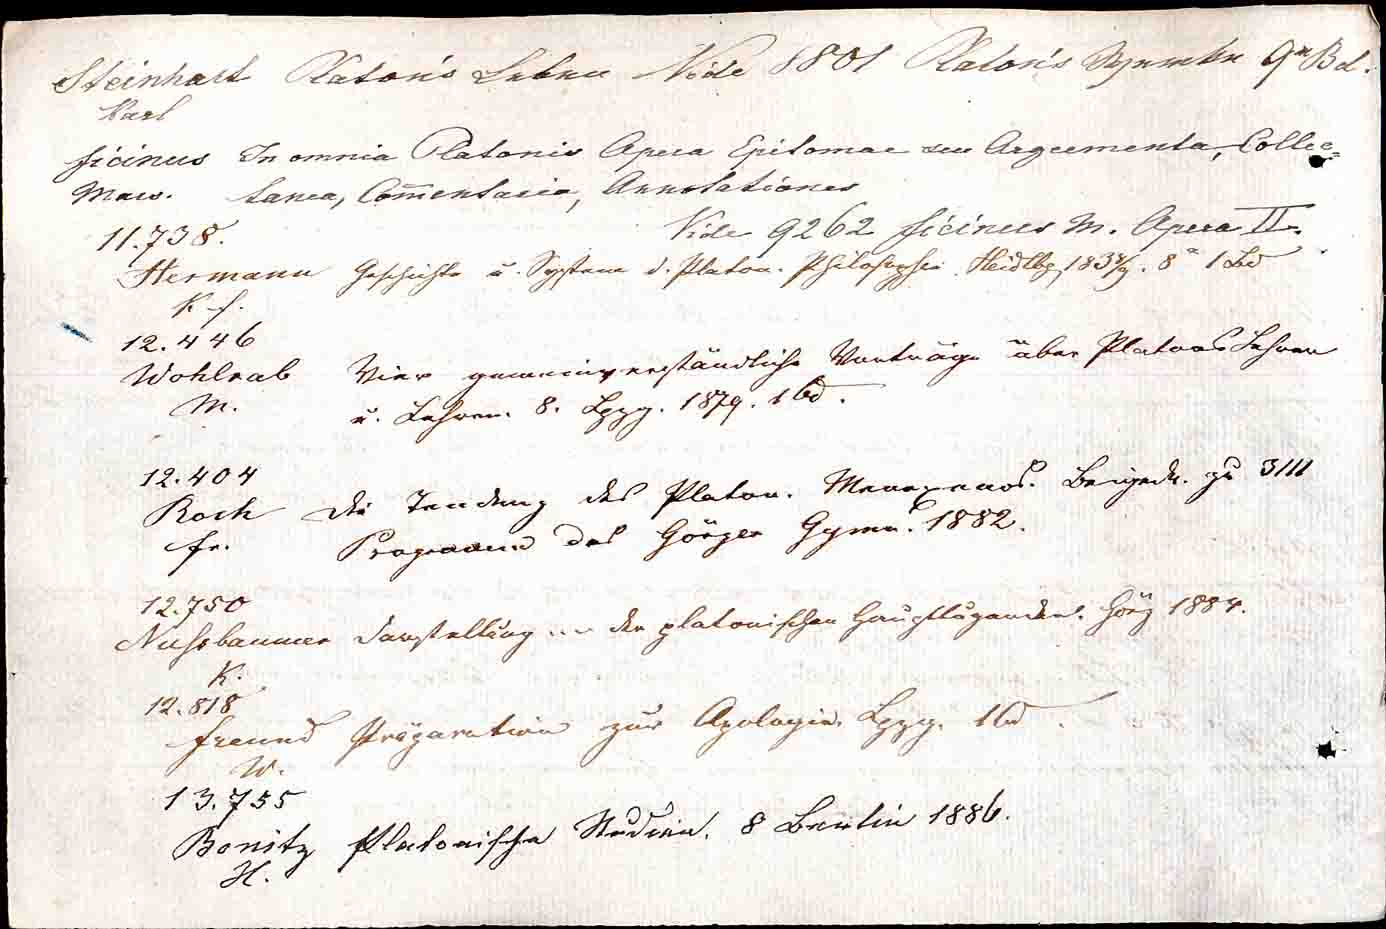 Steinhart Platon's Leben Vide 8801 Platon's Werke 9r Bd.
Karl
Ficinus In omnia Platonis Opera Epitomae seu Argumenta, Collec=
Mars. tanea, Com̄entaria, Annotationes
11.738. Vide 9262 Ficinus M. Opera II.
Hermann Geschichte u. System d. Platon. Philosophie. Heidlbg 183 8/9. 8° 1 Bd
K. F.
12.446
Wohlrab Vier gemeinverständliche Vorträge über Platons Lehrer
M. u. Lehren. 8. Lpzg. 1879. 1 Bd.
12.404
Koch Die Tendenz des Platon. Menexenos. Beigeb. zu 3111
Fr. Programm des Görzer Gymn. 1882.
12.750
Nussbaumer Darstellung ... der platonischen Haupttugenden. Görz 1884.
K.
12.818
Freund Präparation zur Apologie. Lpzg. 1 Bd.
W.
13.755
Bonitz Platonische Studien. 8 Berlin 1886.
H.